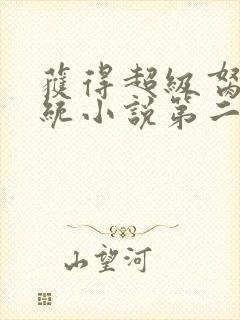 獲得超級
統小說第二
山望河